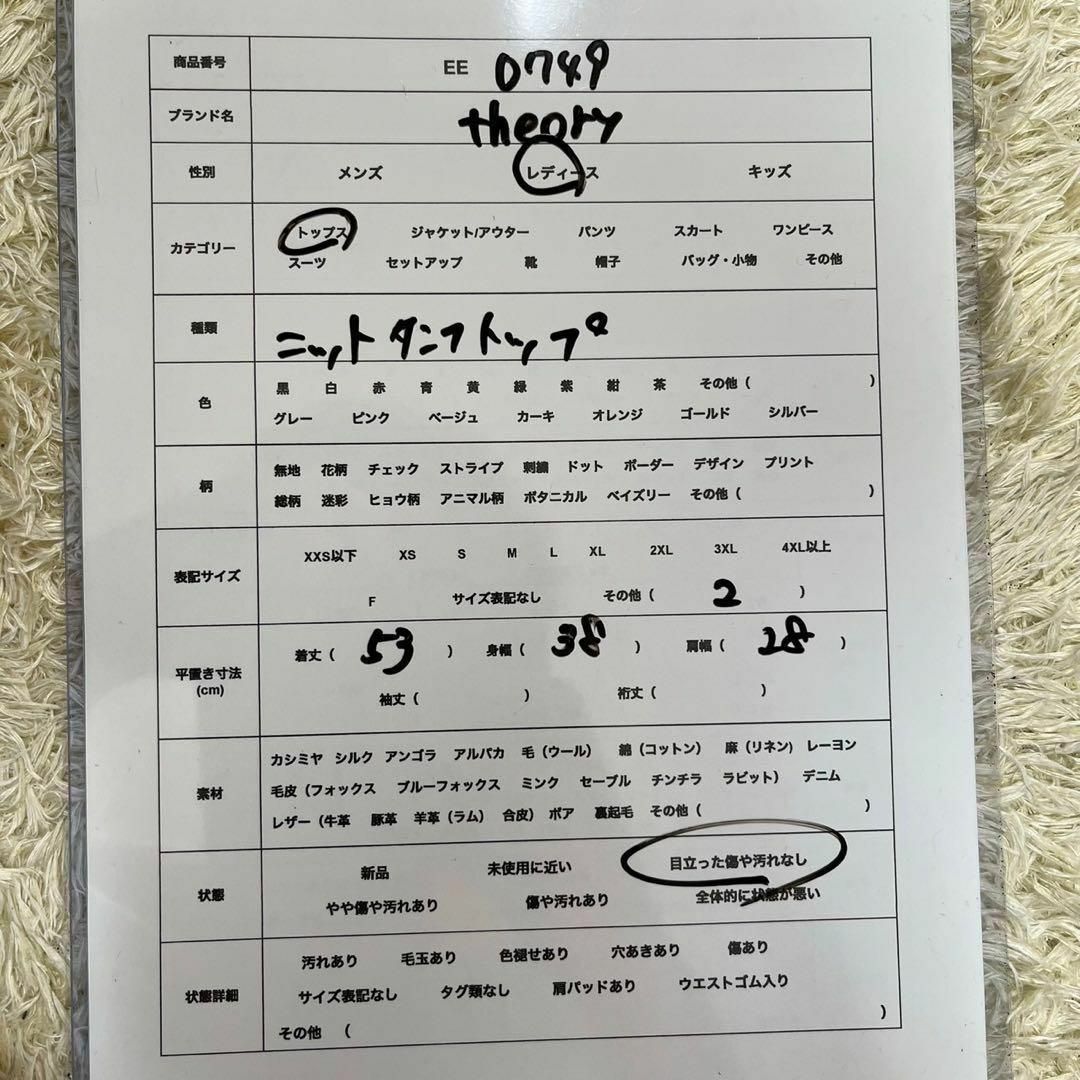 商品番号 EE 0749
ブランド名 theory
性別 メンズ レディース キッズ
カテゴリー トップス ジャケット/アウター パンツ スカート ワンピース
スーツ セットアップ 靴 帽子 バッグ・小物 その他
種類 ニットタンフトップ
色 黒 白 赤 青 黄 緑 紫 紺 茶 その他( )
グレー ピンク ベージュ カーキ オレンジ ゴールド シルバー
柄 無地 花柄 チェック ストライプ 刺繍 ドット ボーダー デザイン プリント
総柄 迷彩 ヒョウ柄 アニマル柄 ボタニカル ペイズリー その他( )
表記サイズ XXS以下 XS S M L XL 2XL 3XL 4XL以上
F サイズ表記なし その他( 2 )
平置き寸法(cm) 着丈( 53 ) 身幅( 38 ) 肩幅( 28 )
袖丈( ) 裄丈( )
素材 カシミヤ シルク アンゴラ アルパカ 毛(ウール) 綿(コットン) 麻(リネン) レーヨン
毛皮(フォックス ブルーフォックス ミンク セーブル チンチラ ラビット) デニム
レザー(牛革 豚革 羊革(ラム) 合皮) ボア 裏起毛 その他( )
状態 新品 未使用に近い 目立った傷や汚れなし
やや傷や汚れあり 傷や汚れあり 全体的に状態が悪い
状態詳細 汚れあり 毛玉あり 色褪せあり 穴あきあり 傷あり
サイズ表記なし タグ類なし 肩パッドあり ウエストゴム入り
その他 ( )